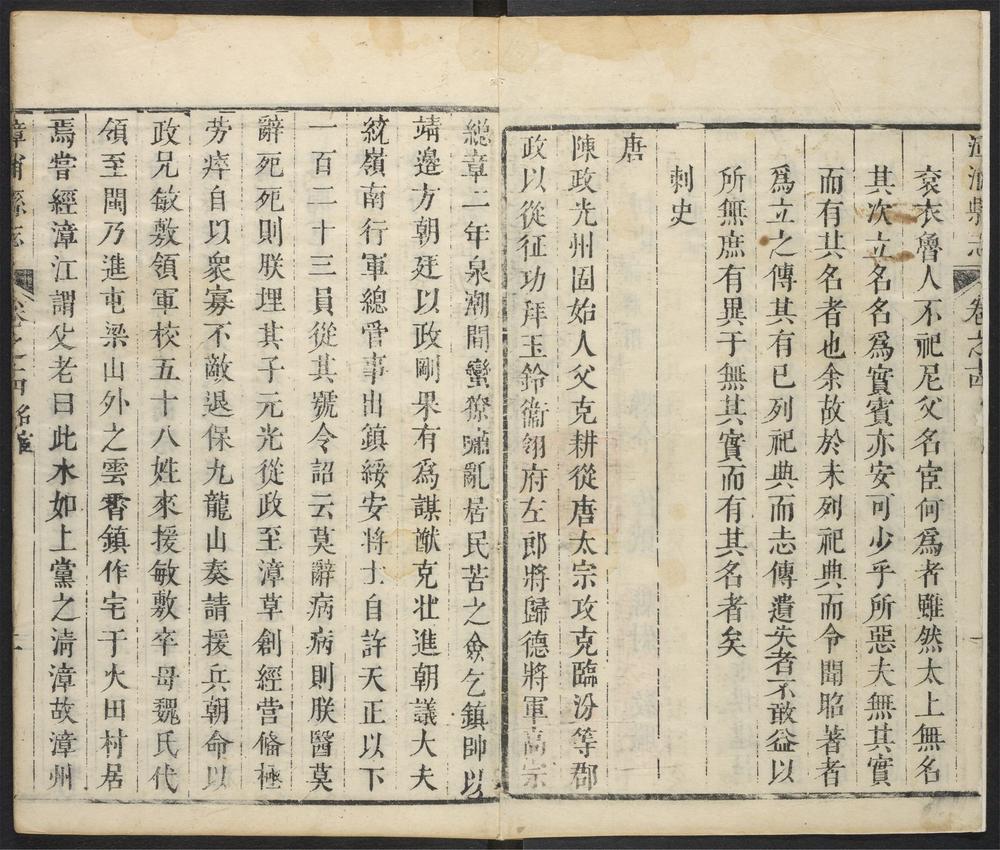 漳浦縣志 卷之十四 一
袞衣魯人不祀尼父名宦何爲者雖然太上無名
其次立名名爲實賓亦安可少乎所惡夫無其實
而有其名者也余故於未列祀典而令聞昭著者
爲立之傳其有已列祀典而志傳遺失者不敢益以
所無庶有異于無其實而有其名者矣
刺史
唐
陳政光州固始人父克耕從唐太宗攻克臨汾等郡
政以從征功拜玉鈐衞翊府左郎將歸德將軍高宗
總章二年泉潮間蠻獠嘯亂居民苦之僉乞鎮帥以
靖邊方朝廷以政剛果有爲謀猷克壯進朝議大夫
統嶺南行軍總管事出鎮綏安將士自許天正以下
一百二十三員從其號令詔云莫辭病病則朕醫莫
辭死死則朕埋其子元光從政至漳草創經營俻極
劳瘁自以衆寡不敵退保九龍山奏請援兵朝命以
政兄敏敷領軍校五十八姓來援敏敷卒母魏氏代
領至閩乃進屯梁山外之雲霄鎮作宅于火田村居
焉嘗經漳江謂父老曰此水如上黨之淸漳故漳州
漳浦縣志 卷之十四名宦 二